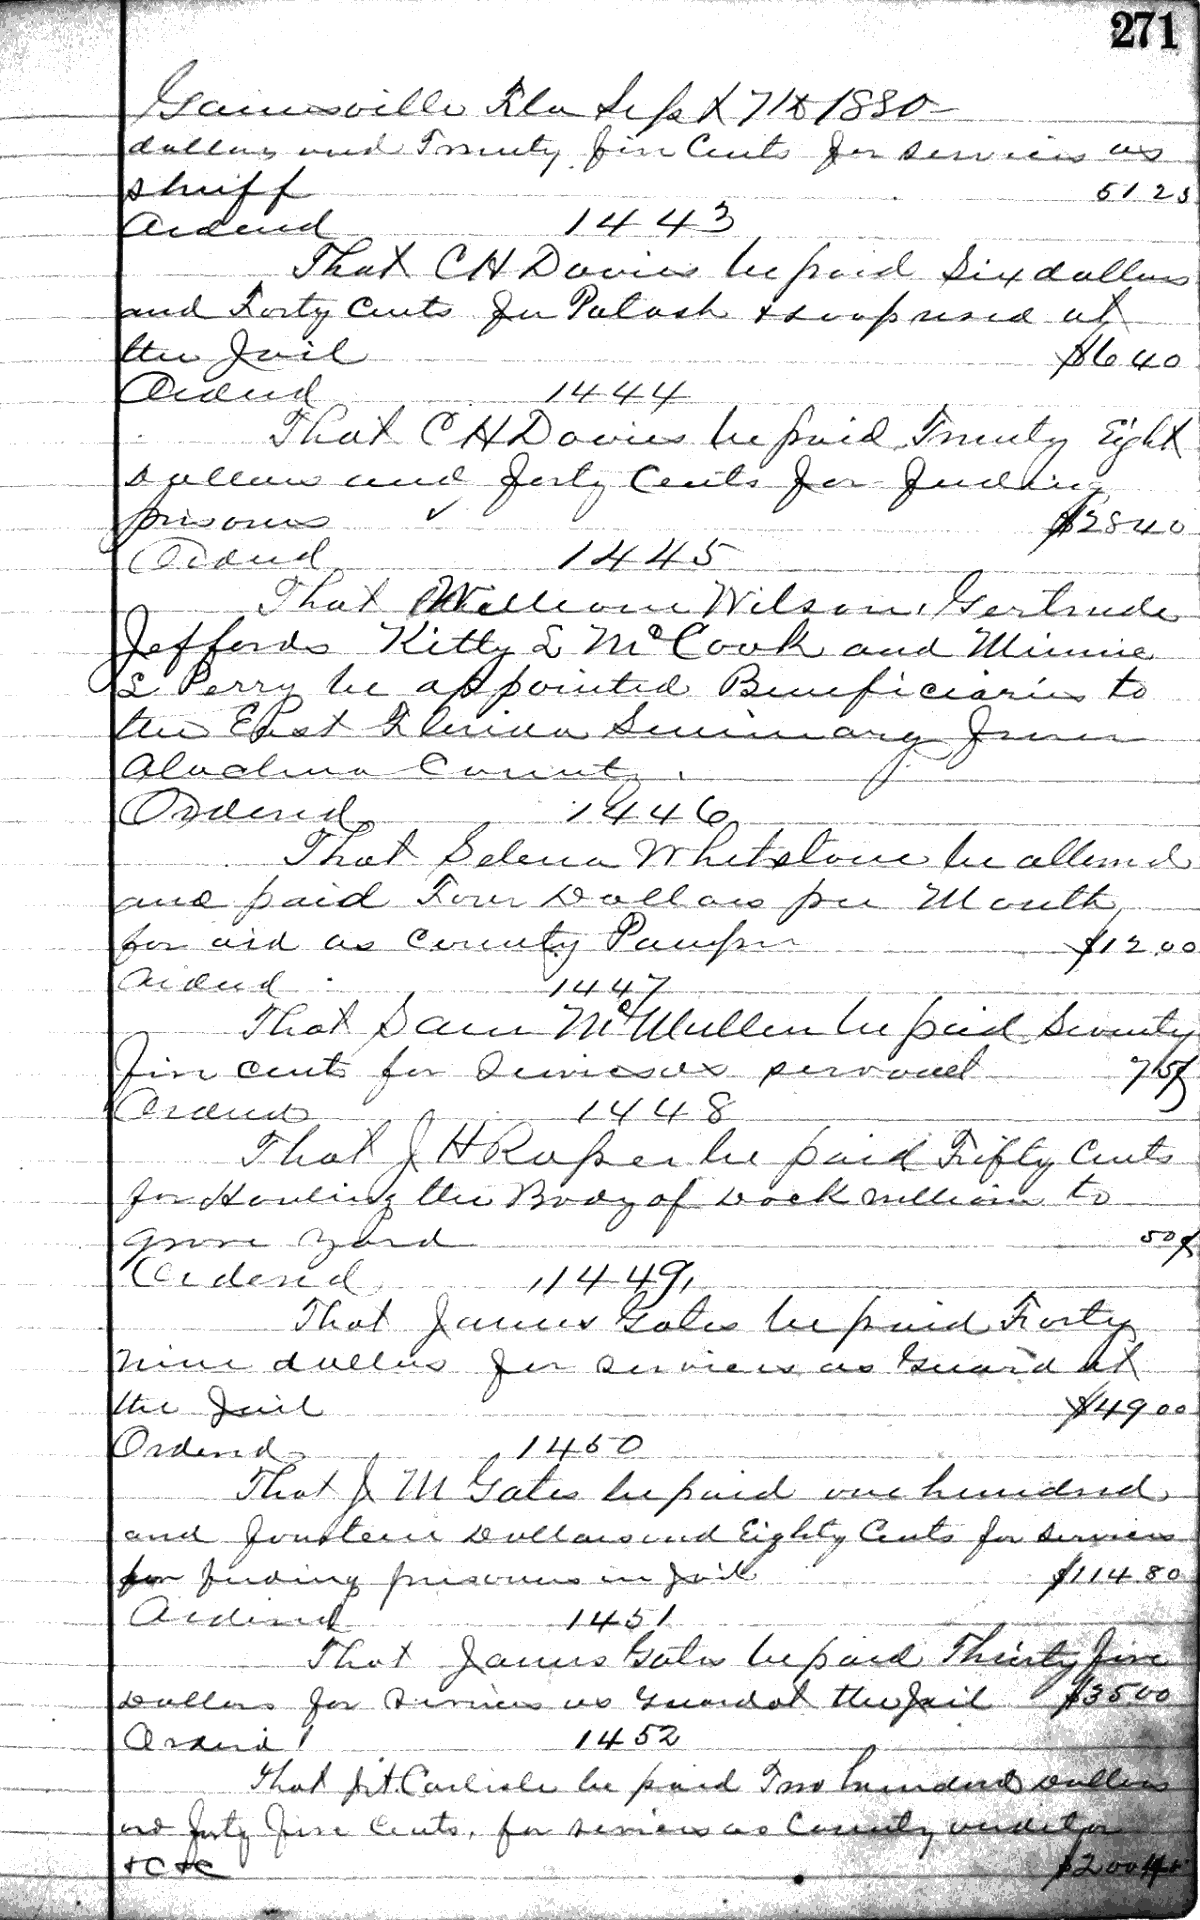 271
Gainesville Fla Sept 7th 1880
dollars and Twenty five Cents for services as
Sheriff 51 25
Ordered 1443
That C H Davies be paid Six dollars
and Forty Cents for Potash & soap used at
the Jail $6 40
Ordered 1444
That C H Davies be paid Twenty Eight
Dollars and forty Cents for feeding
prisoners $28 40
Ordered 1445
That William Wilson, Gertrude
Jeffords Kitty L McCook and Minnie
L Perry be appointed Beneficiaries to
the East Florida Seminary from
Alachua County.
Ordered 1446
That Selena Whetstone be allowed
and paid Four Dollars per Month
for aid as County Pauper $12.00
Ordered 1447
That Sam McMullen be paid Seventy
five cents for services as 75¢
Ordered 1448
That J H Roper be paid Fifty Cents
for Hauling the Body of Dock William to
Grave Yard 50¢
Ordered 1449
That James Gates be paid Forty
nine dollars for services as Guard at
the Jail $49 00
Ordered 1450
That J M Gates be paid one hundred
and fourteen Dollars and Eighty Cents for services
for feeding prisoners in Jail $114 80
Ordered 1451
That James Gates be paid Thirty five
Dollars for services as Guard at the Jail $35 00
Ordered 1452
That J A Carlisle be paid Two hundred Dollars
and forty five Cents. for services as County auditor
&C &C $200 45